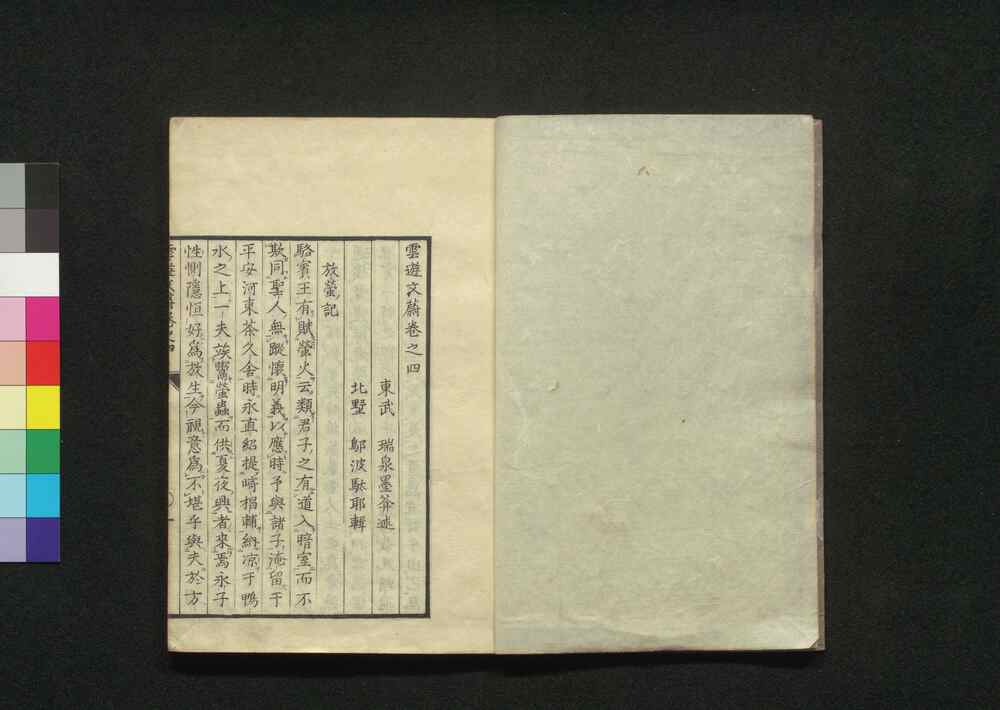 雲遊文蔚卷之四
東武 瑞泉墨莾述
北墅 鄔波馱耶輯
放螢記
駱賓王有賦螢火云類君子之有道入暗室而不
欺同聖人無蹤懷明義以應時予與諸子淹留于
平安河東茶久舍時永直紹提㟢椙輔納凉于鴨
水之上一夫䇃鬻螢蟲而供夏夜興者來焉永子
性惻隱恒好爲放生今視意爲不堪乎與夫於方